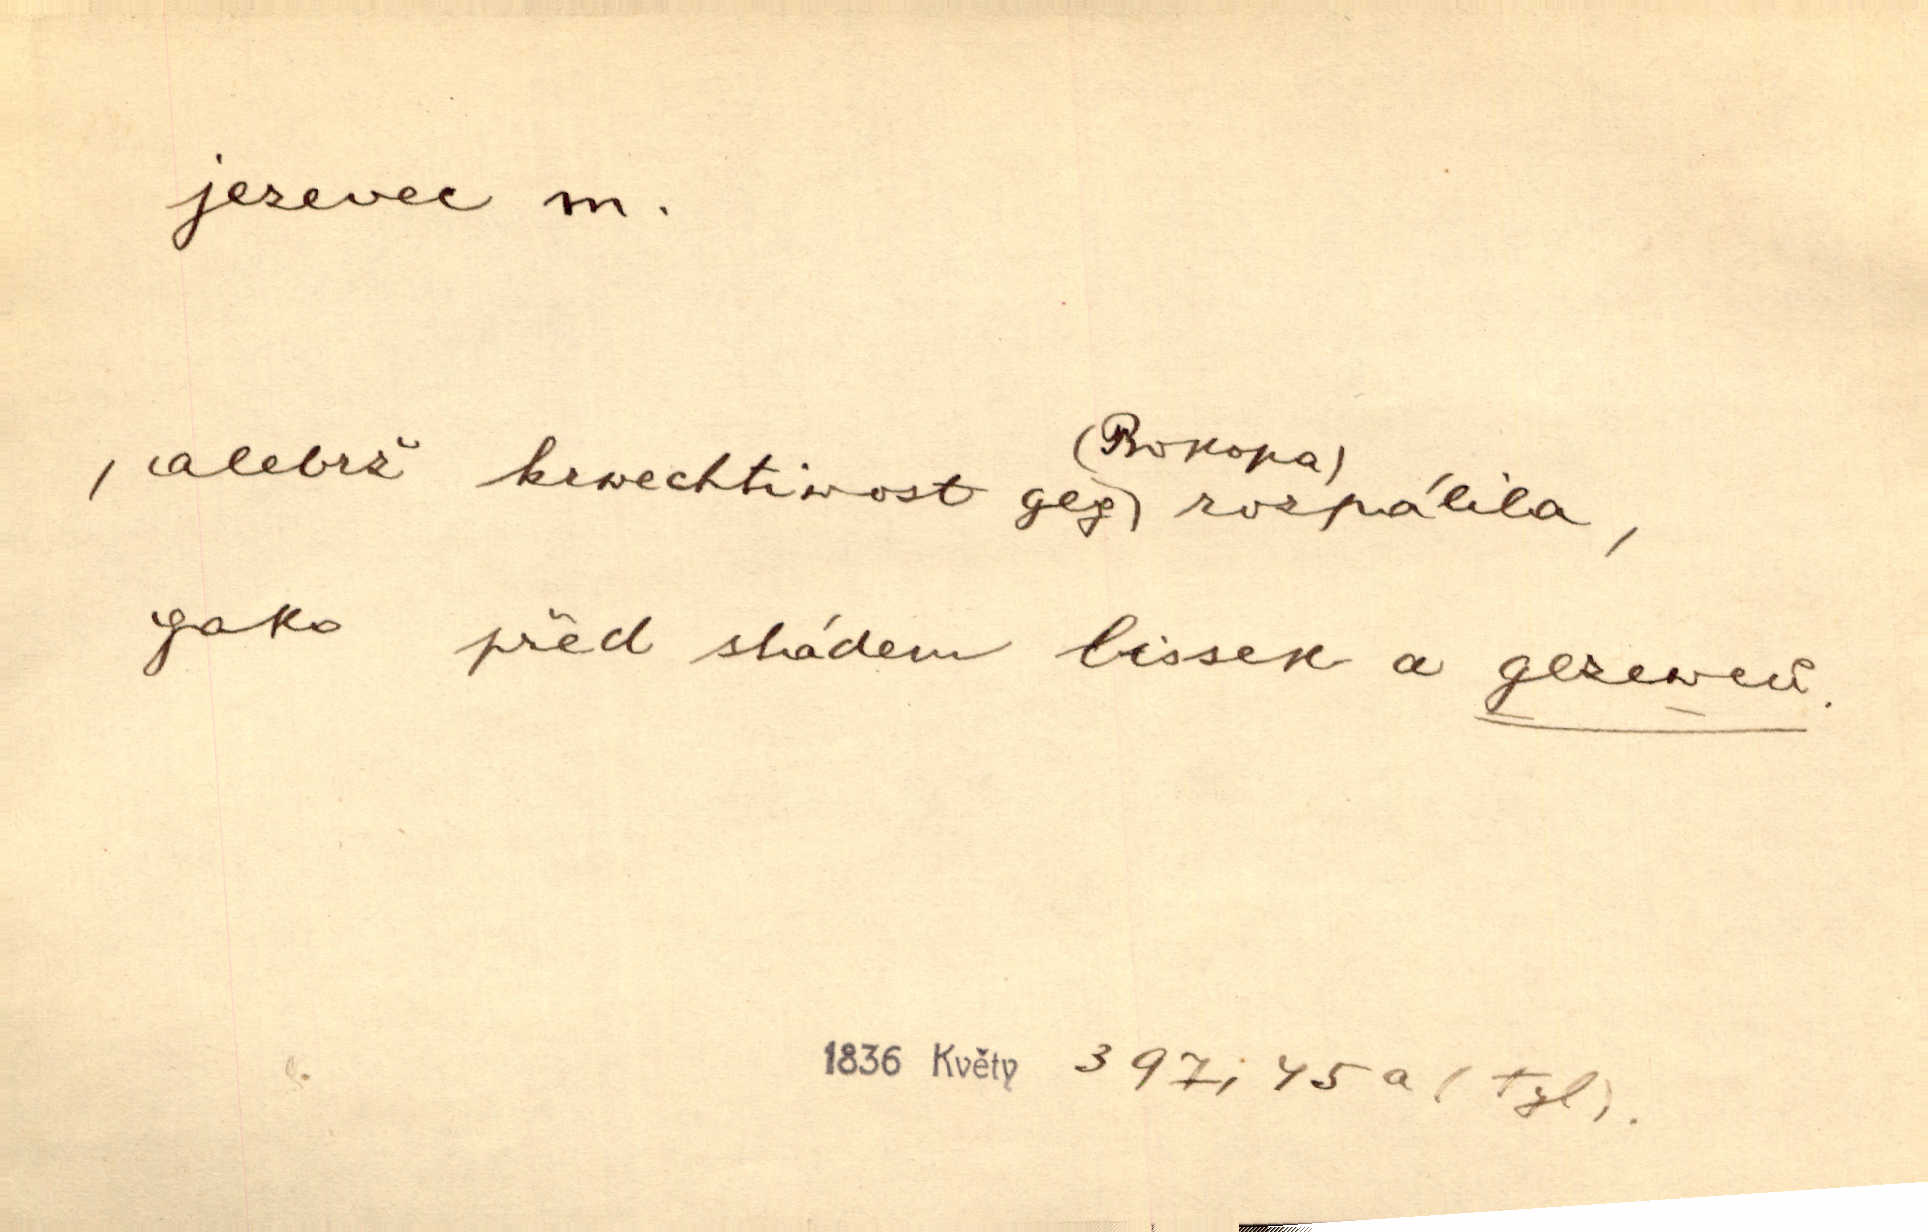 jezevec m.
(Prokopa)
, alebrž krwechtiwost geg) rozpálila,
gako před stádem lissek a gezewců.
1836 Květy 397; 45 a (Tyl).